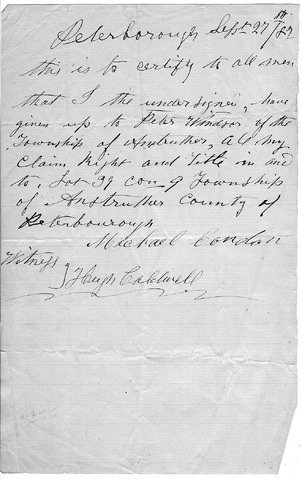 Peterborough Sept 27 / 18
this is to certify to all men
that I the undersigned, have
given up to Peter Windsor of the
Township of Anstruther, All my
Claim Right and Title in and
to, Lot 39 con 9 Township
of Anstruther County of
Peterbourough
Michael Condon
Witness
} Hugh Caldwell